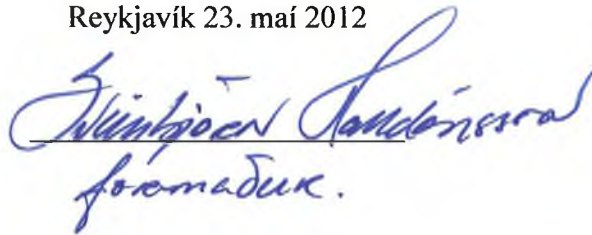 Reykjavík 23. maí 2012
Sveinbjörn Halldórsson
formaður.